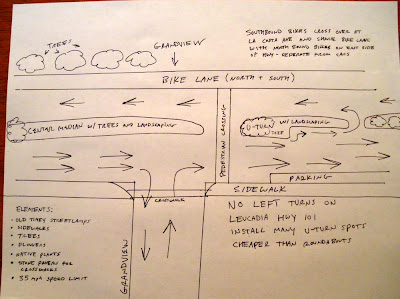 SOUTHBOUND BIKES CROSS OVER AT
LA COSTA AVE AND SHARE BIKE LANE
WITH NORTH BOUND BIKES ON EAST SIDE
OF HWY - SEPERATE FROM CARS
TREES
GRANDVIEW
BIKE LANE (NORTH + SOUTH)
CENTER MEDIAN W/TREES AND LANDSCAPING
PEDESTRIAN CROSSING
U-TURN W/LANDSCAPING
PARKING
CROSSWALK
SIDEWALK
ELEMENTS:
• OLD TIMEY STREETLAMPS
• SIDEWALKS
• TREES
• FLOWERS
• NATIVE PLANTS
• STONE PAVERS FOR
CROSSWALKS
• 35 MPH SPEED LIMIT
GRANDVIEW
NO LEFT TURNS ON
LEUCADIA HWY 101
INSTALL MANY U-TURN SPOTS
CHEAPER THAN ROUNDABOUTS